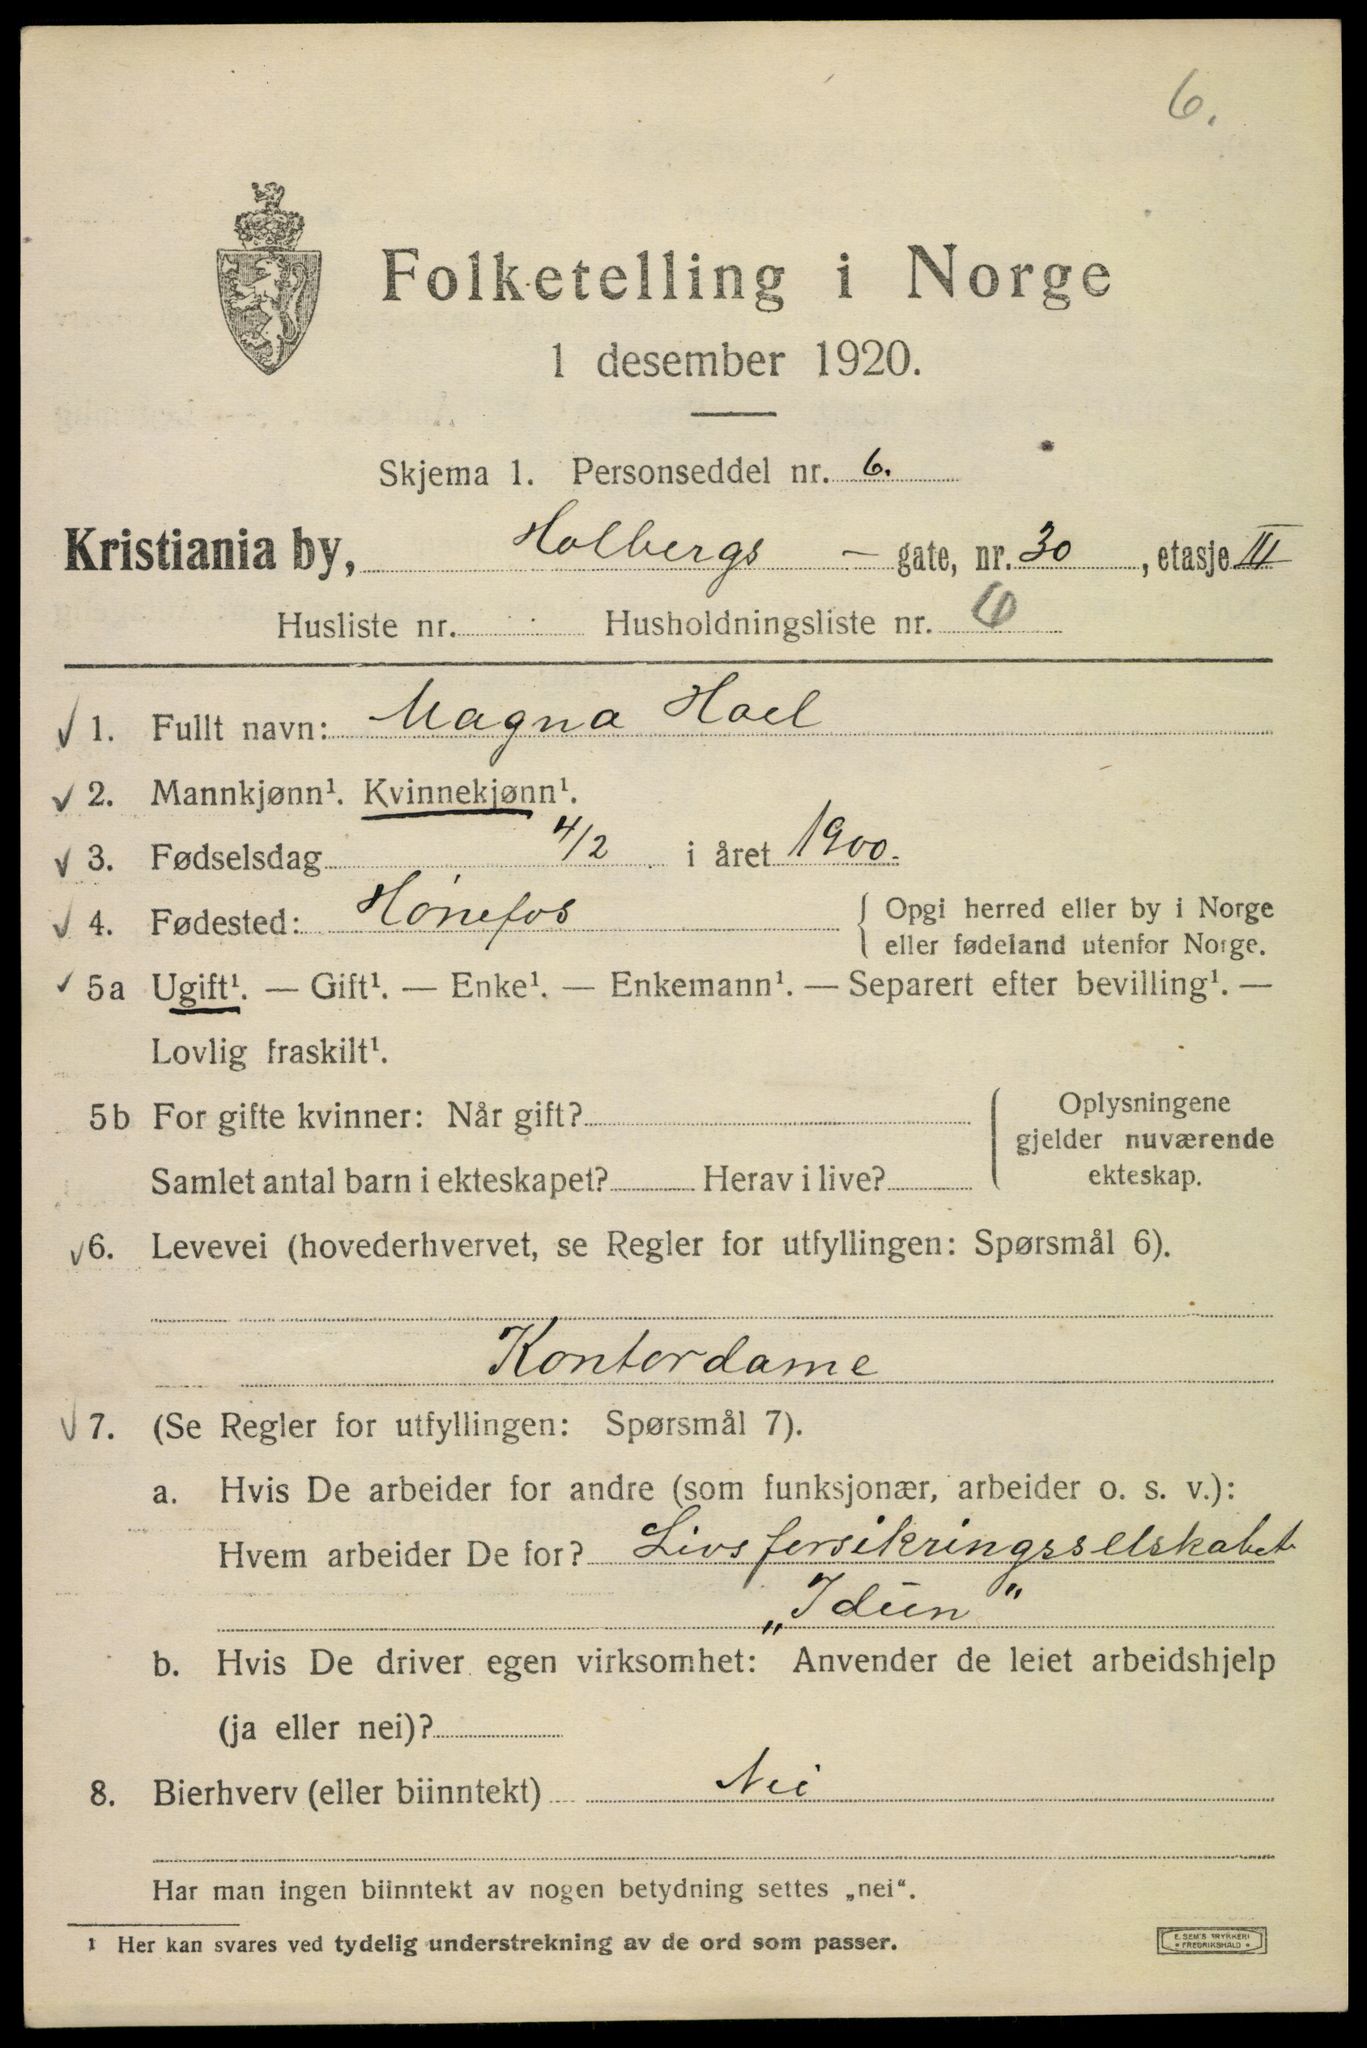 6.
Folketelling i Norge
1 desember 1920.
Skjema 1. Personseddel nr. 6.
Kristiania by, Holbergs - gate, nr. 30, etasje III
Husliste nr. Husholdningsliste nr. 6
1. Fullt navn: Magna Hoel
2. Mannkjønn¹. Kvinnekjønn¹.
3. Fødselsdag 4/2 i året 1900.
4. Fødested: Hønefos { Opgi herred eller by i Norge
eller fødeland utenfor Norge.
5a Ugift¹. — Gift¹. — Enke¹. — Enkemann¹. — Separert efter bevilling¹. —
Lovlig fraskilt¹.
5b For gifte kvinner: Når gift?
Samlet antal barn i ekteskapet? Herav i live?
Oplysningene
gjelder nuværende
ekteskap.
6. Levevei (hovederhvervet, se Regler for utfyllingen: Spørsmål 6).
Kontordame
7. (Se Regler for utfyllingen: Spørsmål 7).
a. Hvis De arbeider for andre (som funksjonær, arbeider o. s. v.):
Hvem arbeider De for? Livsforsikringsselskabet
„Idun"
b. Hvis De driver egen virksomhet: Anvender de leiet arbeidshjelp
(ja eller nei)?
8. Bierhverv (eller biinntekt) Nei
Har man ingen biinntekt av nogen betydning settes „nei".
¹ Her kan svares ved tydelig understrekning av de ord som passer.
E. SEM'S TRYKKERI
FREDRIKSHALD